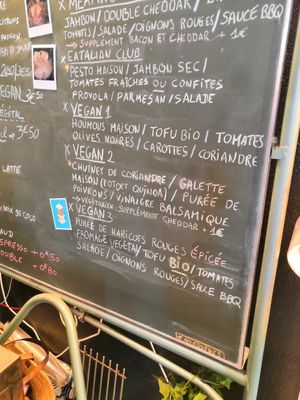 JAMBON/DOUBLE CHEDDAR/
TOMATES/SALADE/OIGNONS ROUGES/SAUCE BBQ
→ SUPPLÉMENT BACON ET CHEDDAR + 1€
X EATALIAN CLUB
PESTO MAISON/JAMBON SEC/
TOMATES FRAÎCHES OU CONFITES
PROVOLA/PARMESAN/SALADE
X VEGAN 1
HOUMOUS MAISON/TOFU BIO/TOMATES
OLIVES NOIRES/CAROTTES/CORIANDRE
X VEGAN 2
CHUTNEY DE CORIANDRE/GALETTE
MAISON (POTOET QUINOA)/PURÉE DE
POIVRONS/VINAIGRE BALSAMIQUE
→ VÉGÉTARIEN: SUPPLÉMENT CHEDDAR + 1€
X VEGAN 3
PURÉE DE HARICOTS ROUGES ÉPICÉE
FROMAGE VEGETAL/TOFU BIO/TOMATES
SALADE/OIGNONS ROUGES/SAUCE BBQ
VEGAN 3€50
3€50
LATTE
ESPRESSO + 0€50
DOUBLE + 0€80